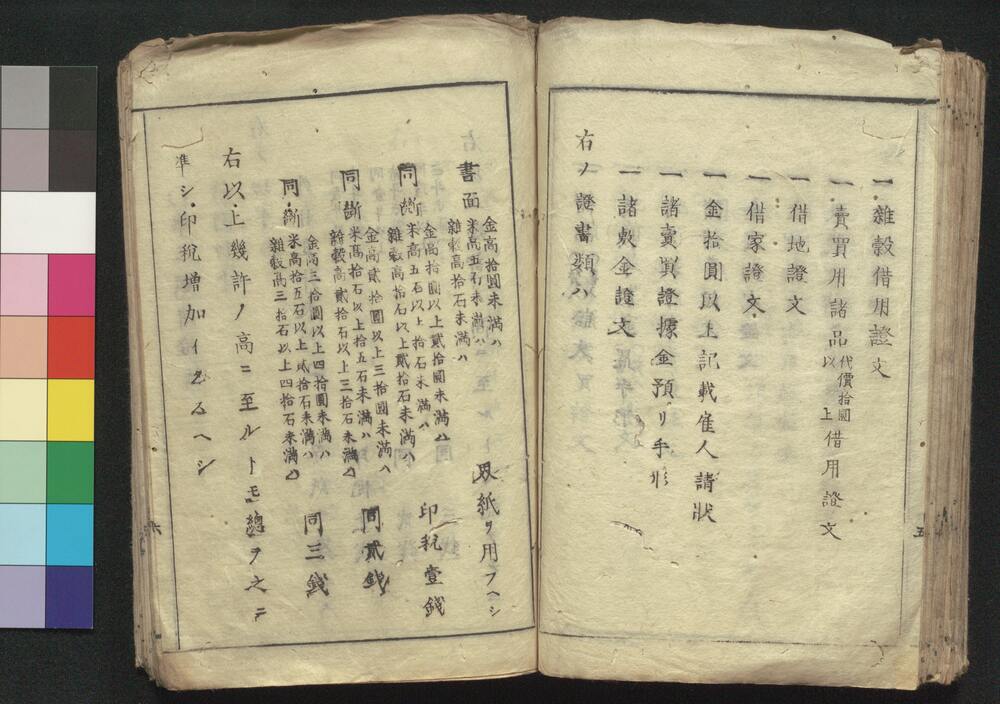 一雑穀借用證文
一賣買用諸品代價拾圓以上借用證文
一借地證文
一借家證文
一金拾圓以上記載雇人請狀
一諸賣買證據金預リ手形
一諸敷金證文
右ノ證書類ハ
五
書面金高拾圓未満ハ
米高五石未満ハ
雜穀高拾石未満ハ
界紙ヲ用フヘシ
印税壹錢
同斷金高拾圓以上貳拾圓未満ハ
米高五石以上拾石未満ハ
雜穀高拾石以上貳拾石未満ハ
同貳錢
同斷金高貳拾圓以上三拾圓未満ハ
米高拾石以上拾五石未満ハ
雜穀高貳拾石以上三拾石未満ハ
同三錢
同斷金高三拾圓以上四拾圓未満ハ
米高拾五石以上貳拾石未満ハ
雜穀高三拾石以上四拾石未満ハ
右以上幾許ノ高ニ至ルトモ總テ之ニ
準シ印税増加イタルヘシ
六